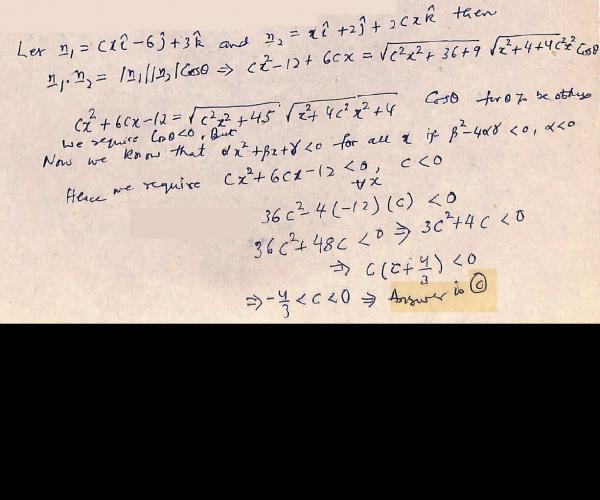 Let n₁ = cxî - 6ĵ + 3k̂ and n₂ = xî + 2ĵ + 2cxk̂ then
n₁.n₂ = |n₁||n₂|Cosθ ⇒ cx² - 12 + 6cx = √(c²x² + 36 + 9) √(x² + 4 + 4c²x²) Cosθ
cx² + 6cx - 12 = √(c²x² + 45) √(x² + 4c²x² + 4) Cosθ for θ to be obtuse
we require Cosθ < 0, But
Now we know that αx² + βx + γ < 0 for all x if β² - 4αγ < 0, α < 0
Hence we require cx² + 6cx - 12 < 0, c < 0
∀ x
36c² - 4(-12)(c) < 0
36c² + 48c < 0 ⇒ 3c² + 4c < 0
⇒ c(c + 4/3) < 0
⇒ -4/3 < c < 0 ⇒ Answer is ⓒ